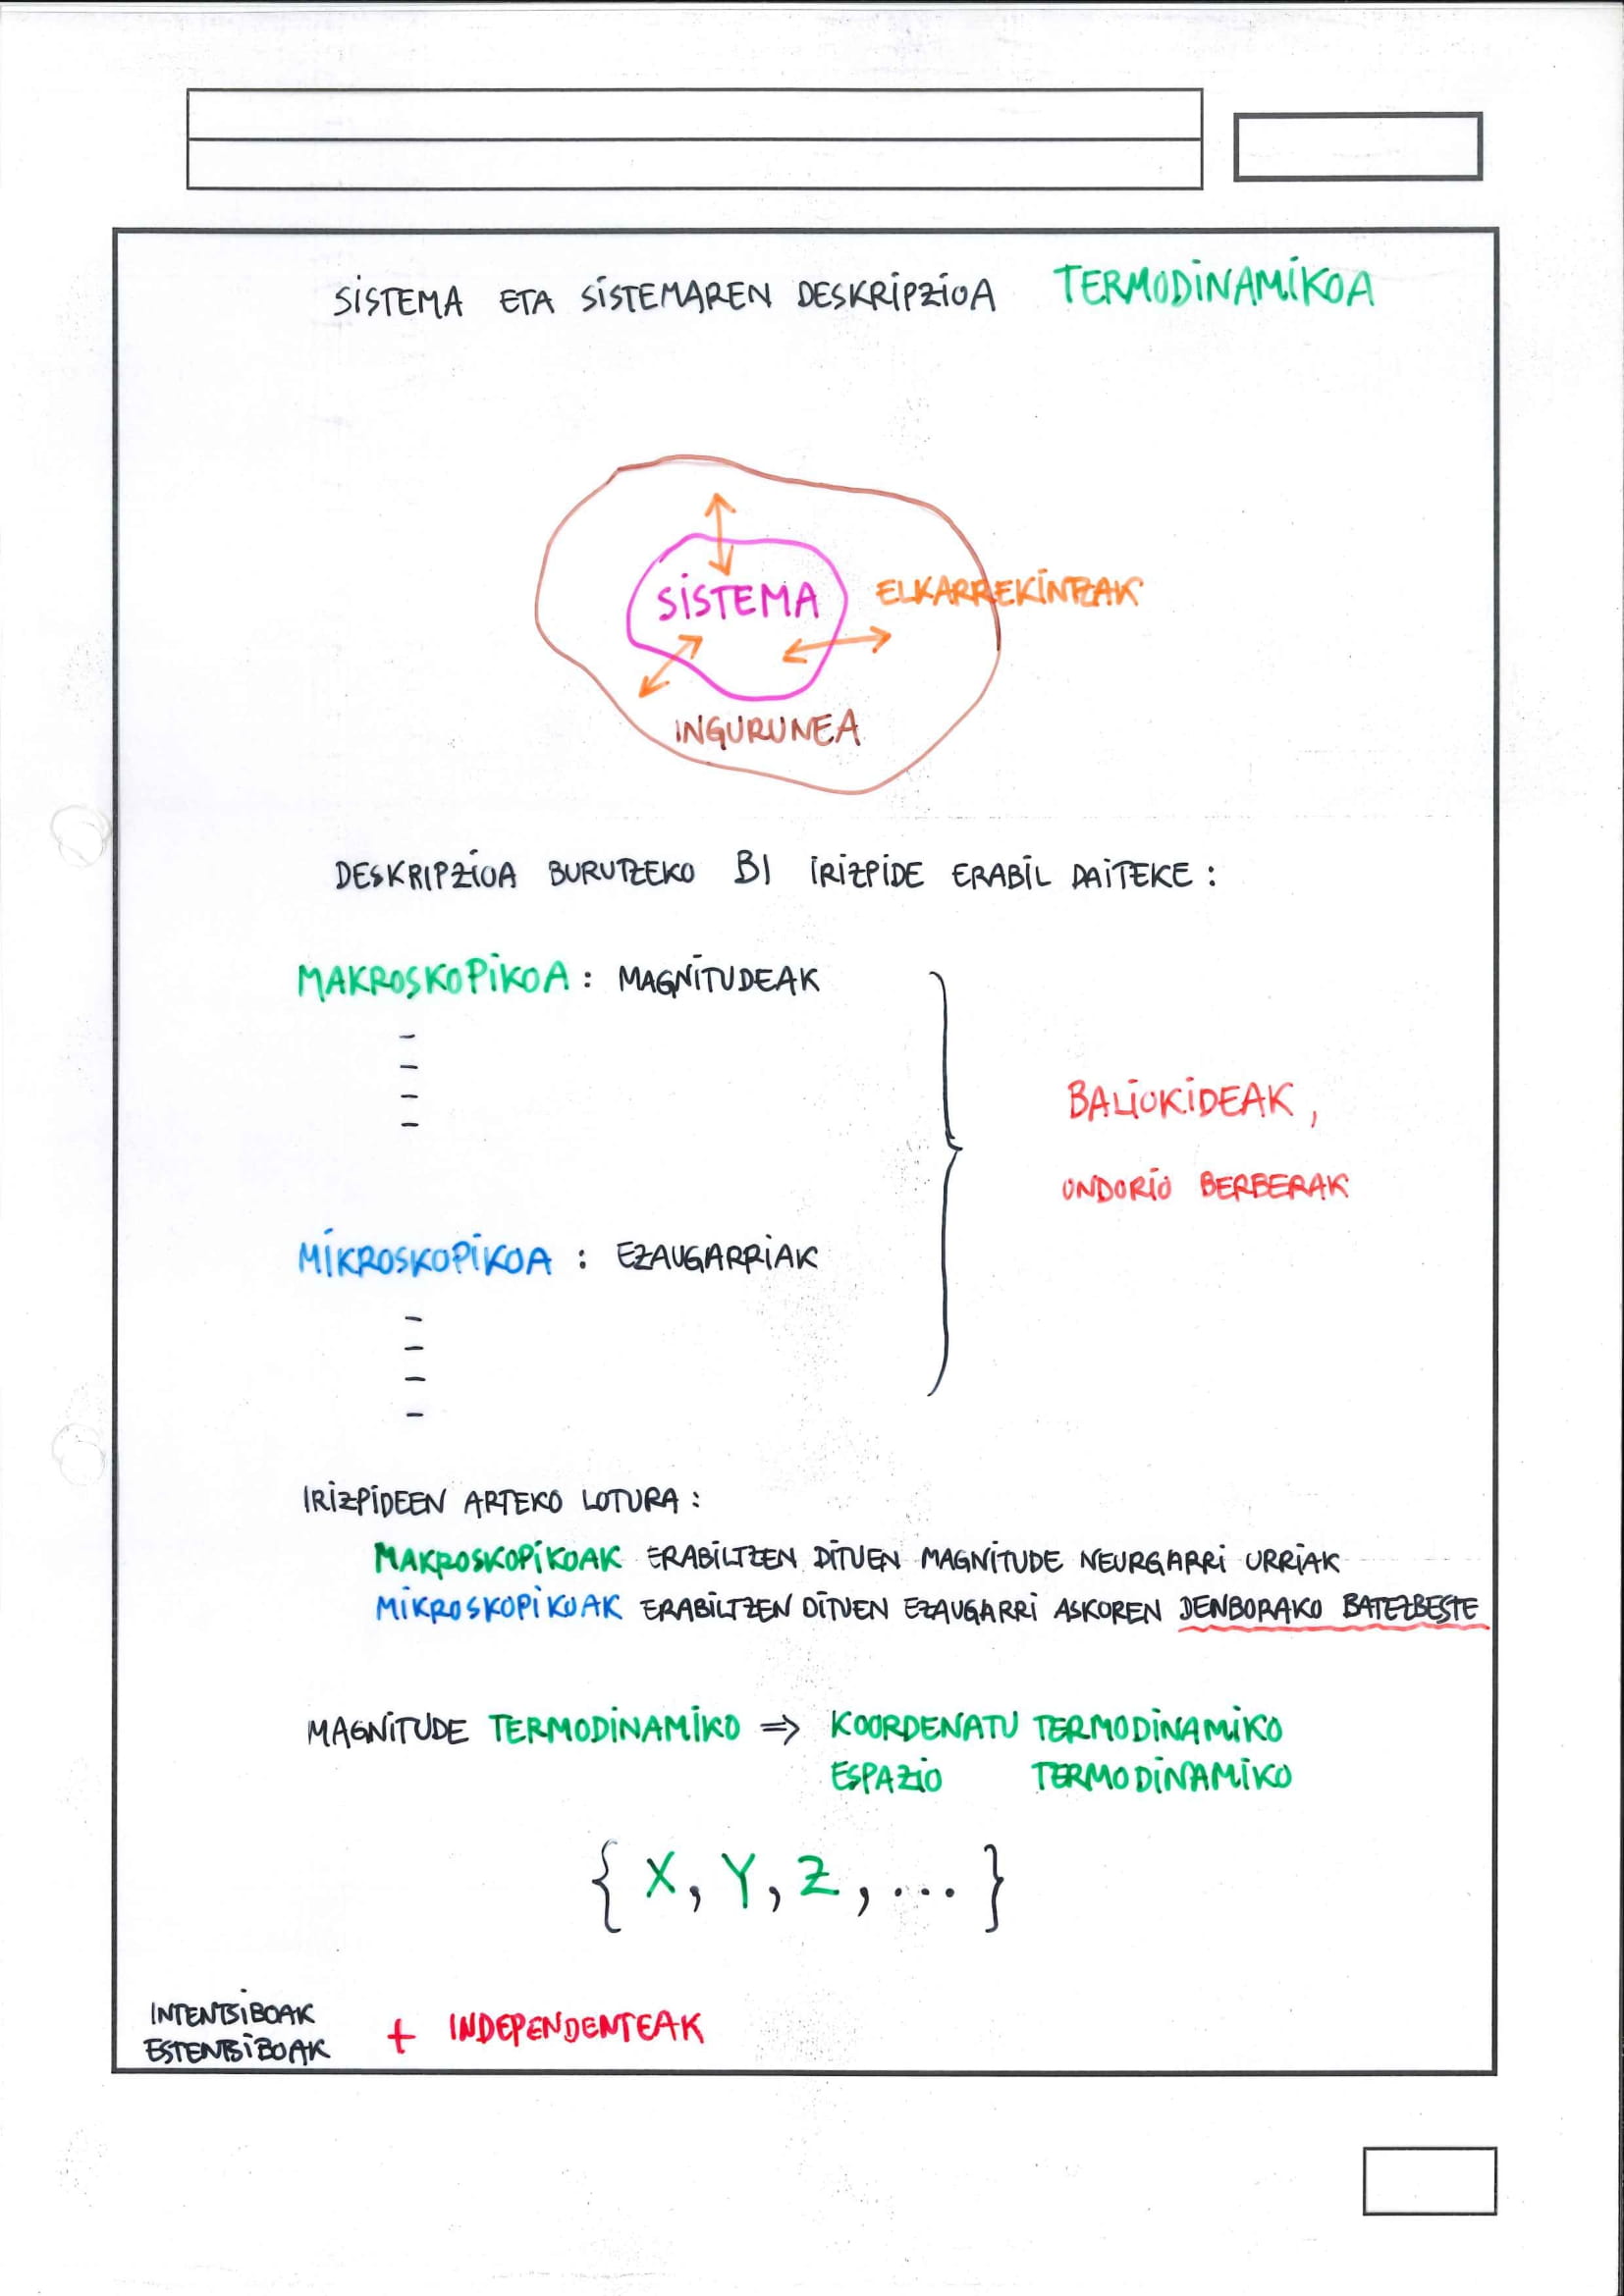 SISTEMA ETA SISTEMAREN DESKRIPZIOA TERMODINAMIKOA
SISTEMA
ELKARREKINTZAK
INGURUNEA
DESKRIPZIOA BURUTZEKO BI IRIZPIDE ERABIL DAITEKE :
MAKROSKOPIKOA : MAGNITUDEAK
-
-
-
-
BALIOKIDEAK ,
ONDORIO BERBERAK
MIKROSKOPIKOA : EZAUGARRIAK
-
-
-
-
IRIZPIDEEN ARTEKO LOTURA :
MAKROSKOPIKOAK ERABILTZEN DITUEN MAGNITUDE NEURGARRI URRIAK
MIKROSKOPIKOAK ERABILTZEN DITUEN EZAUGARRI ASKOREN DENBORAKO BATEZBESTE
MAGNITUDE TERMODINAMIKO ⇒ KOORDENATU TERMODINAMIKO
ESPAZIO TERMODINAMIKO
{ X, Y, Z, ... }
INTENTSIBOAK
ESTENTSIBOAK + INDEPENDENTEAK